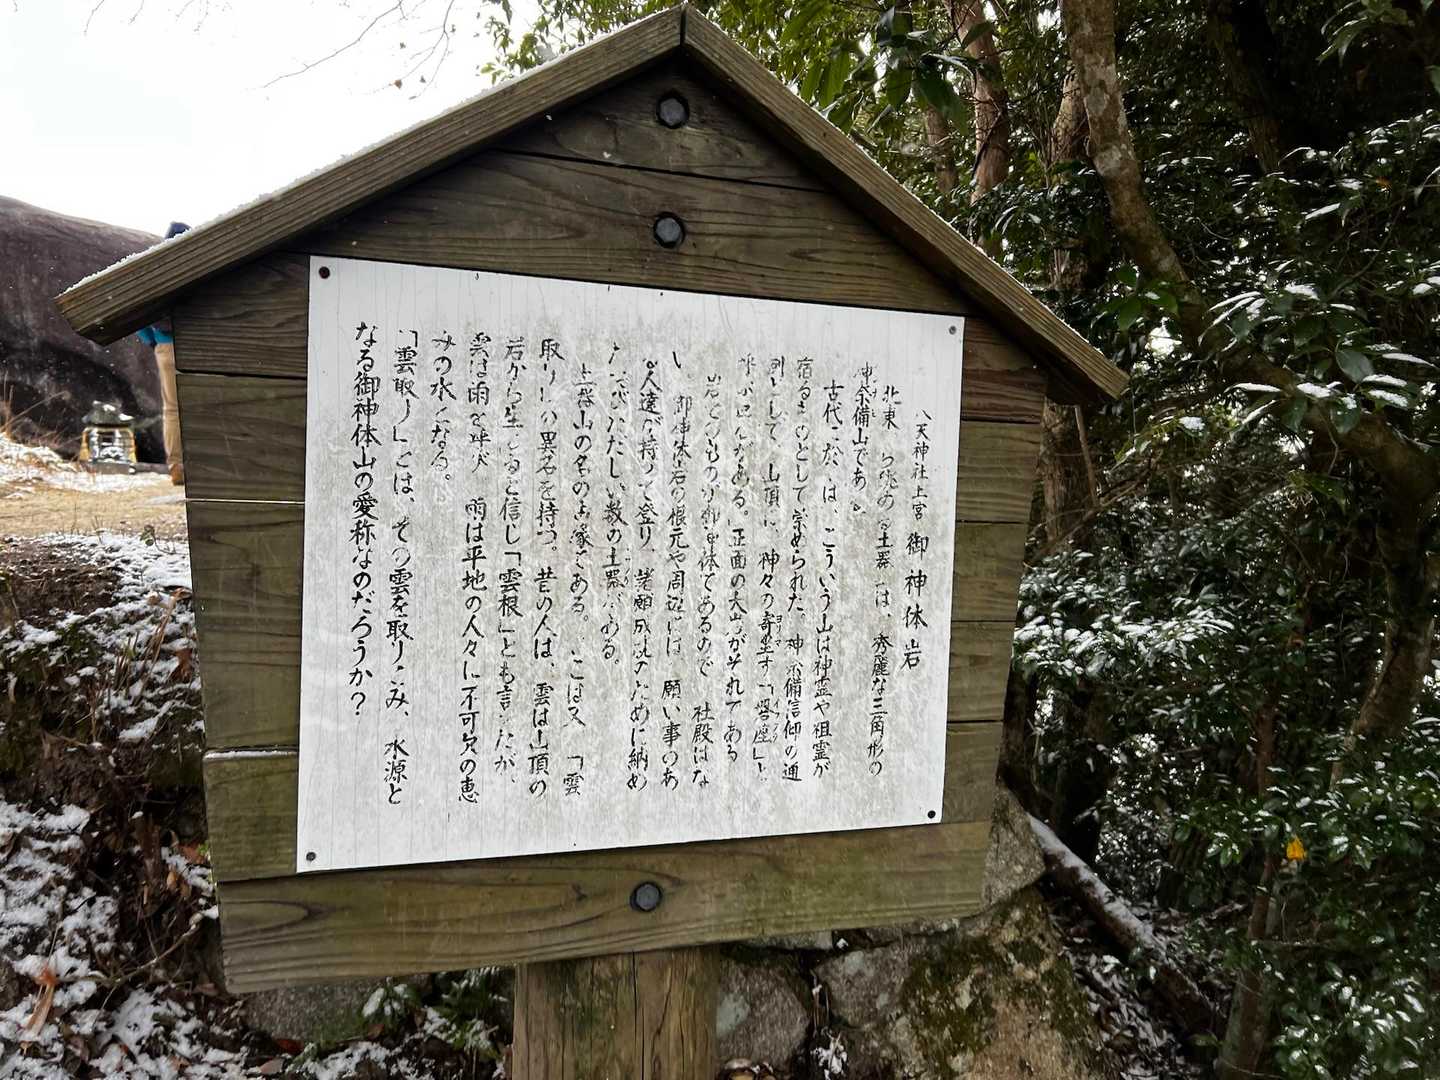 八天神社上宮 御神体岩
北東 ら眺め 土器 は、秀麗な三角形の
神奈備山であ 。
古代 は、こういう山は神霊や祖霊が
宿るものとして崇められた。神奈備信仰の通
例として、山頂に、神々の寄坐す「磐座」と
ヨリマ イワクラ
がある。正面の大岩がそれである
岩そのものが御神体であるので 社殿はな
い。御神体岩の根元や周辺には、願い事のあ
る人達が持って登り、諸願成就のために納め
たおびただしい数の土器がある。
土器山の名の由縁である。ここは又、「雲
取り」の異名を持つ。昔の人は、雲は山頂の
岩から生まれると信じ「雲根」とも言ったが、
雲は雨を呼び、雨は平地の人々に不可欠の恵
みの水となる。
「雲取り」とは、その雲を取りこみ、水源と
なる御神体山の愛称なのだろうか？